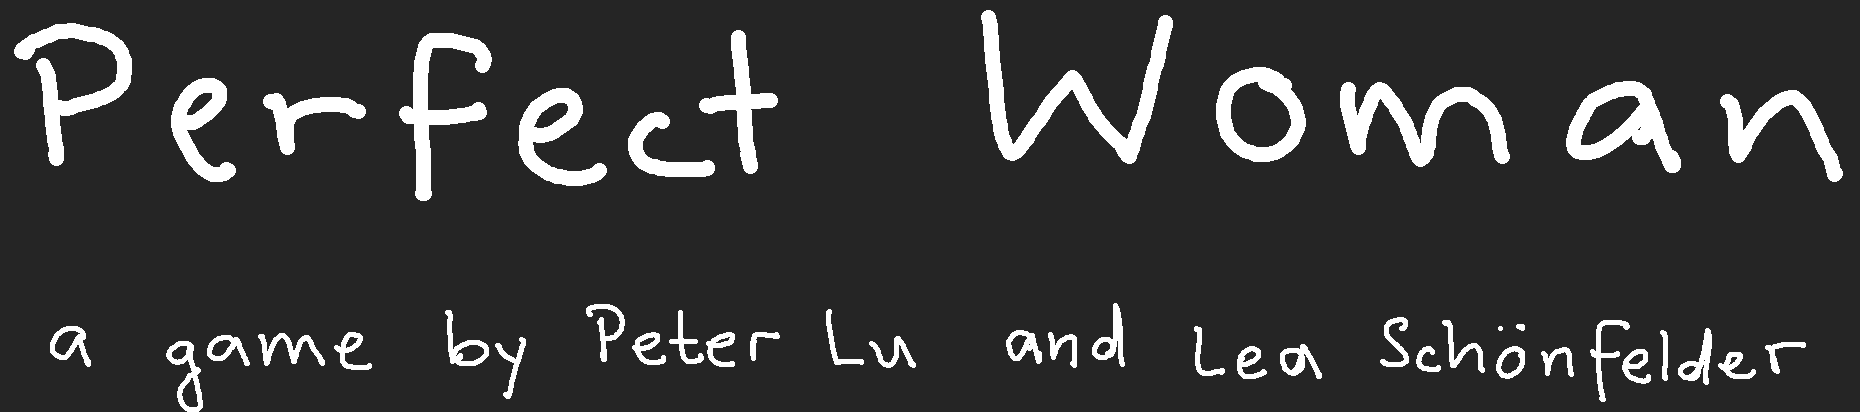 Perfect Woman
a game by Peter Lu and Lea Schönfelder